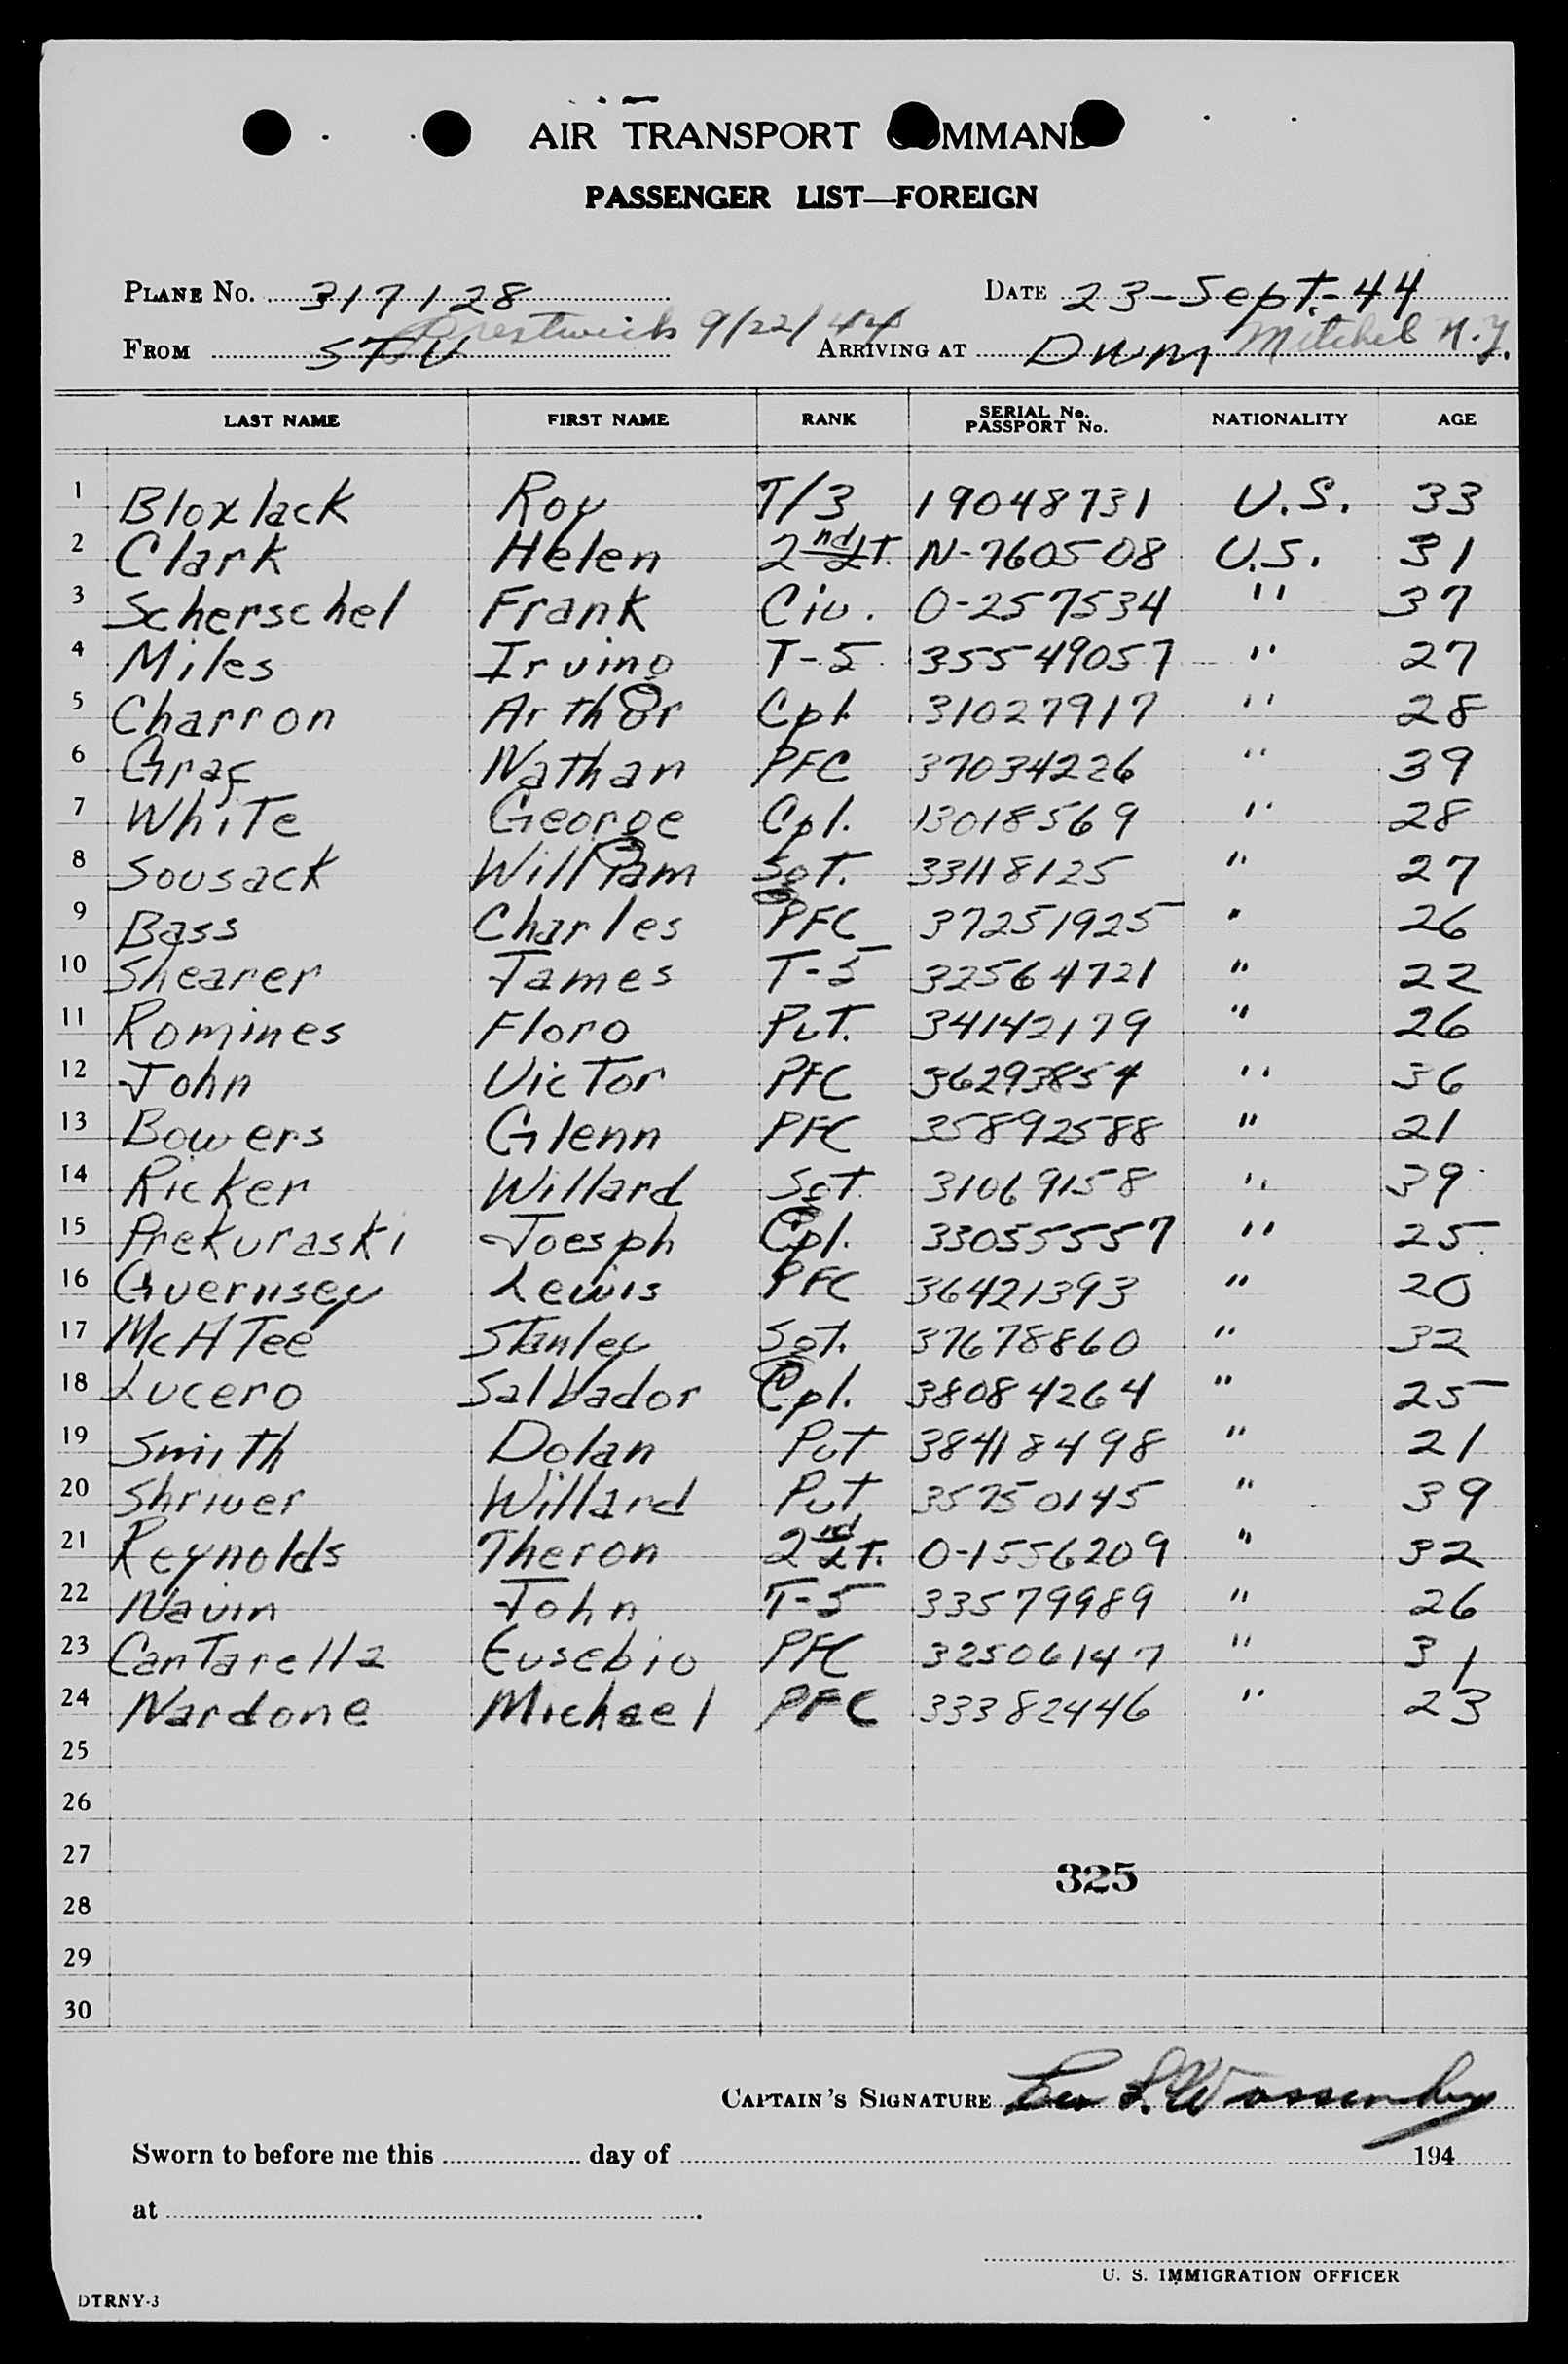 AIR TRANSPORT COMMAND
PASSENGER LIST—FOREIGN
PLANE No. 317128 DATE 23-Sept.-44
Prestwick 9/22/44 Mitchel N.Y.
FROM STU ARRIVING AT DWM
LAST NAME FIRST NAME RANK SERIAL No. PASSPORT No. NATIONALITY AGE
1 Bloxlack Roy T/3 19048731 U.S. 33
2 Clark Helen 2nd LT. N-760508 U.S. 31
3 Scherschel Frank Civ. O-257534 " 37
4 Miles Irving T-5 35549057 " 27
5 Charron Arthor Cpl. 31027917 " 28
6 Graf Nathan PFC 37034226 " 39
7 White George Cpl. 13018569 " 28
8 Sousack William Sgt. 33118125 " 27
9 Bass Charles PFC 37251925 " 26
10 Shearer James T-5 32564721 " 22
11 Romines Floro Pvt. 34142179 " 26
12 John Victor PFC 36293854 " 36
13 Bowers Glenn PFC 35892588 " 21
14 Ricker Willard Sgt. 31069158 " 39
15 Prekuraski Joesph Cpl. 33055557 " 25
16 Guernsey Lewis PFC 36421393 " 20
17 McATee Stanley Sgt. 37678860 " 32
18 Lucero Salbador Cpl. 38084264 " 25
19 Smith Dolan Pvt 38418498 " 21
20 Shriver Willard Pvt 35750145 " 39
21 Reynolds Theron 2nd LT. O-1556209 " 32
22 Navin John T-5 33579989 " 26
23 Cantarella Eusebio PFC 32506147 " 31
24 Nardone Michael PFC 33382446 " 23
25
26
27
325
28
29
30
CAPTAIN'S SIGNATURE Leo L. W
Sworn to before me this day of 194
at
U. S. IMMIGRATION OFFICER
DTRNY-3